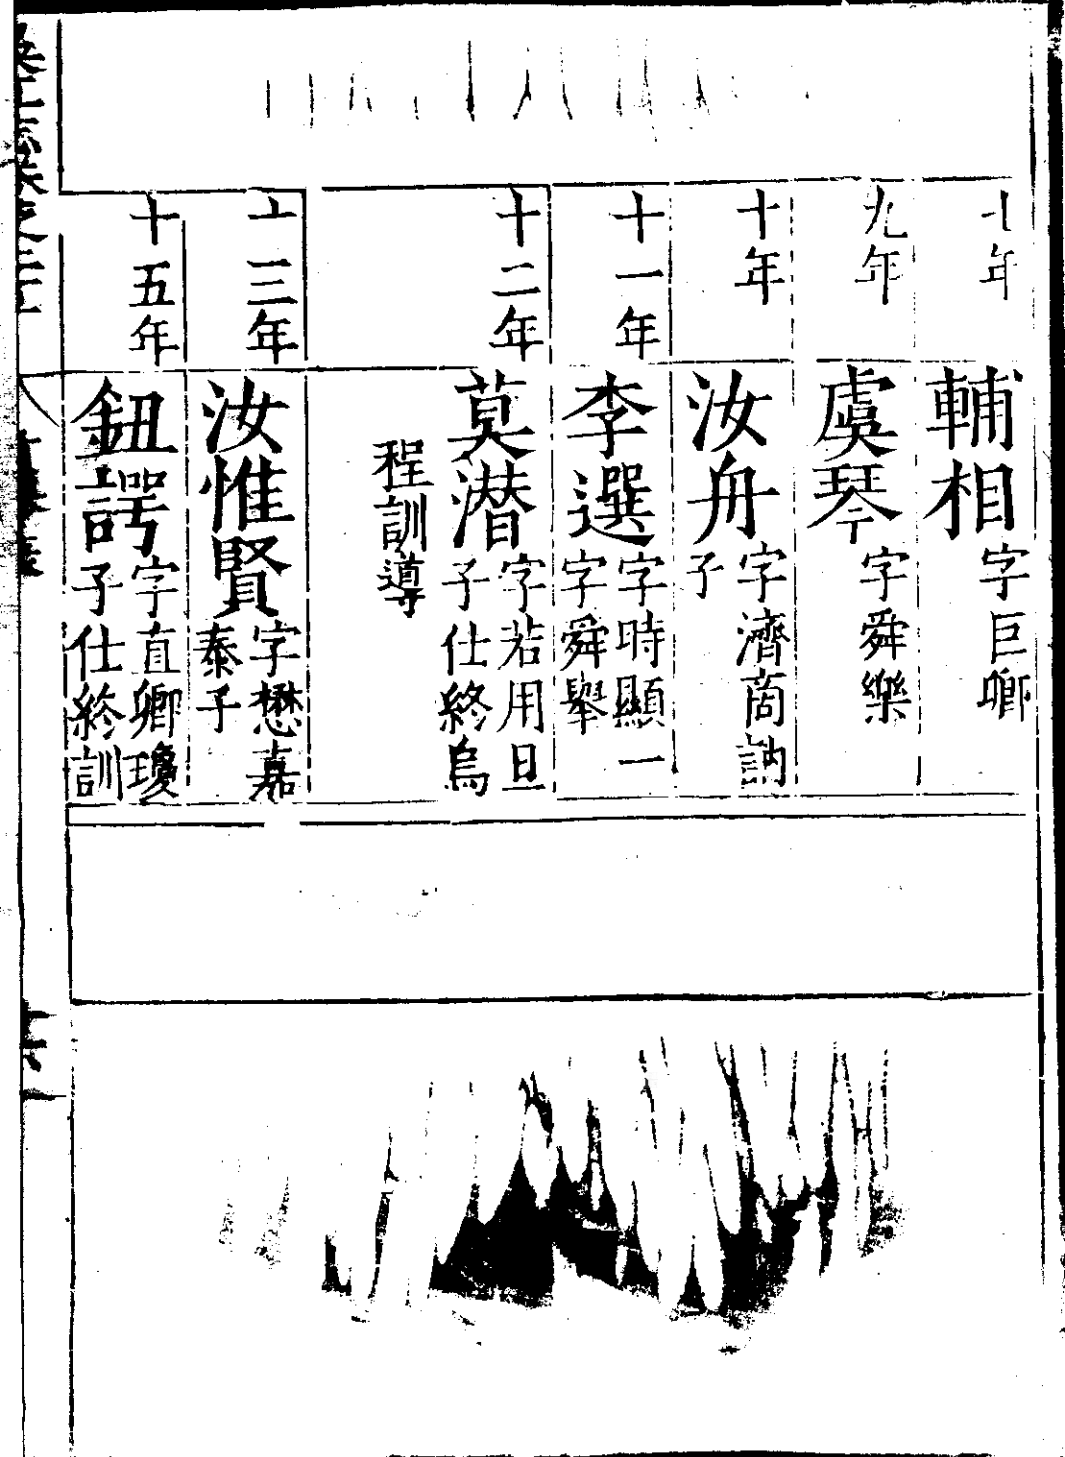 七年
輔相字巨卿
九年
虞琴字舜樂
十年
汝舟字濟商訥
子
十一年
李選字時顯一
字舜舉
十二年
莫潜字若用旦
子仕終烏
程訓導
十三年
汝惟賢字懋嘉
泰子
十五年
鈕諤字直卿瓊
子仕終訓